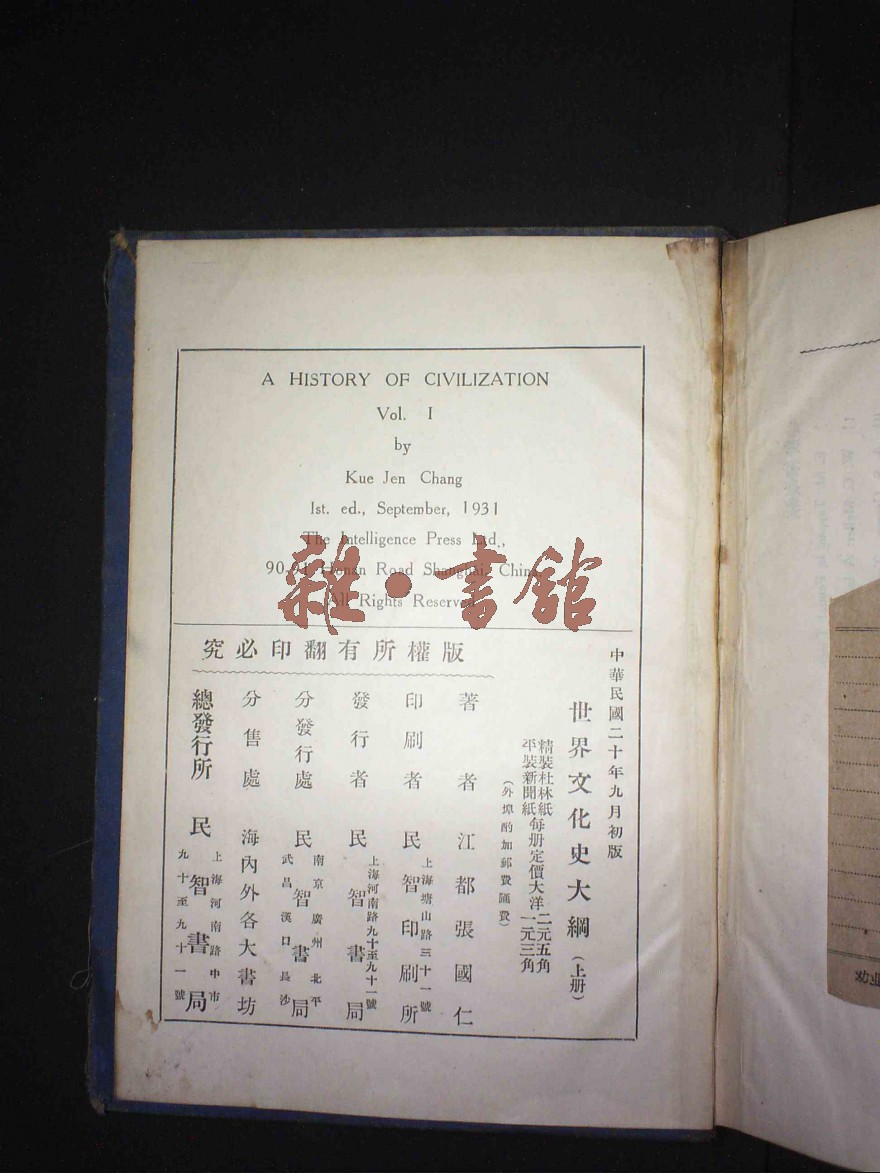 A HISTORY OF CIVILIZATION
Vol. I
by
Kue Jen Chang
1st. ed., September, 1931
The Intelligence Press Ltd.,
90-91 Honan Road Shanghai, China.
All Rights Reserved
雜·書館
究必印翻有所權版
中華民國二十年九月初版
世界文化史大綱（上册）
精裝杜林紙每册定價大洋二元五角
平裝新聞紙每册定價大洋一元三角
（外埠酌加郵費匯費）
著者 江都張國仁
印刷者 民智印刷所
上海塘山路三十一號
發行者 民智書局
上海河南路九十至九十一號
分發行處 民智書局
南京 廣州 北平
武昌 漢口 長沙
分售處 海內外各大書坊
總發行所 民智書局
上海河南路中市
九十至九十一號